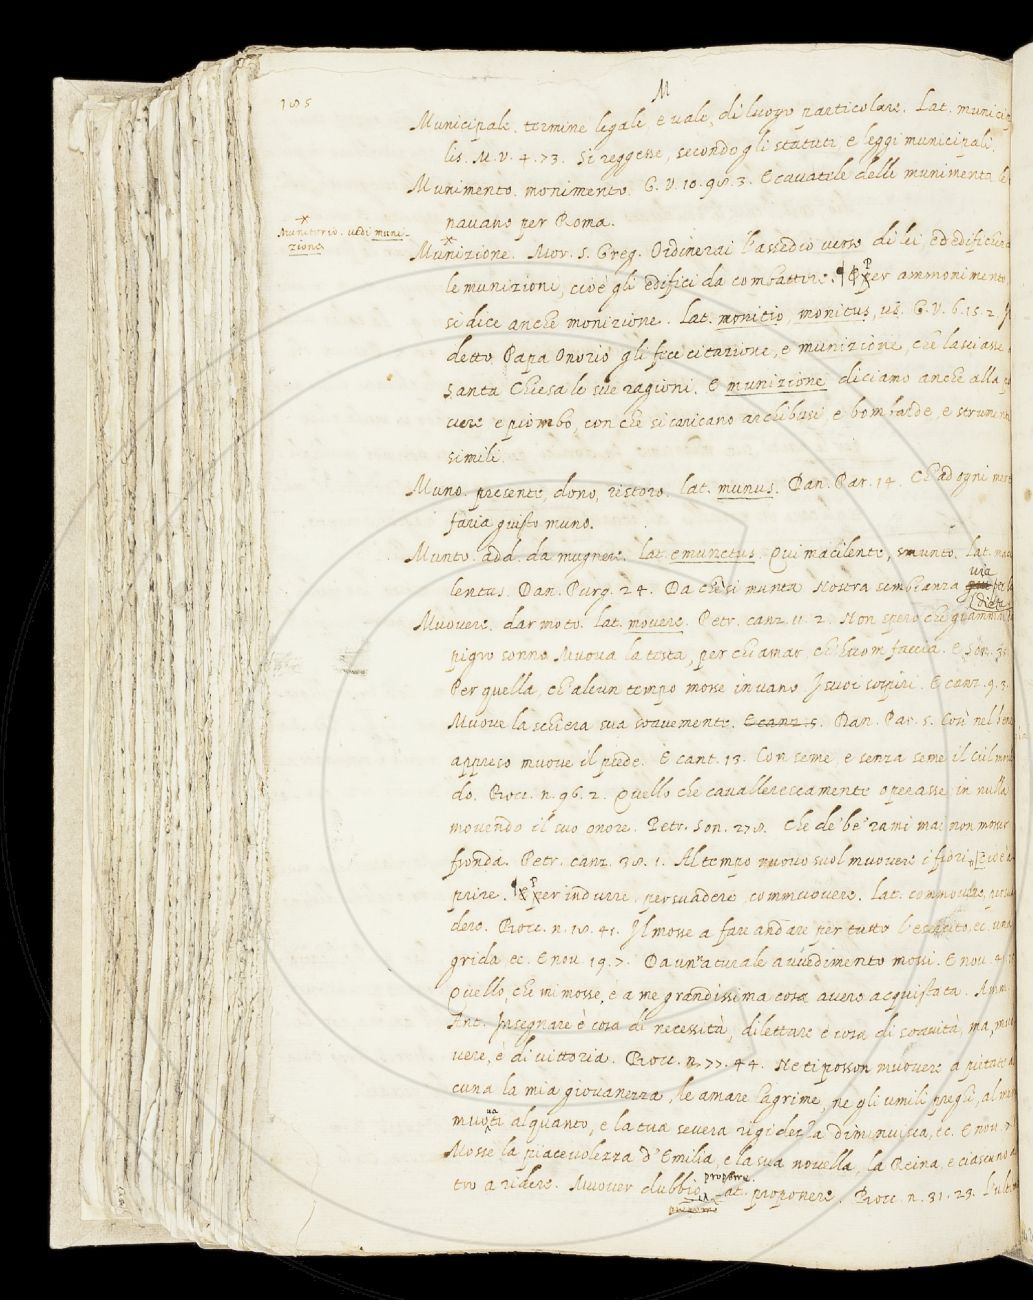 185
M
Municipale. termine legale, e vale, di luogo particolare. Lat. munici
lis. M. V. 4. 73. Si reggesse, secondo gli statuti, e leggi municipali.
Munimento. monimento. G. V. 10. 98. 3. E cavatele delle munimenta le
navano per Roma.
Munitorio. vedi muni-
zione
Munizione. Mor. S. Greg. Ordinerai l'assedio verso di lei, ed edifichera
le munizioni, cioè gli edifici da combattere. Per ammonimento
si dice anche monizione. Lat. monitio, monitus, us. G. V. 6. 15. 2. Il
detto Papa Onorio gli fece citazione, e munizione, che lasciasse
Santa Chiesa le sue ragioni. E munizione diciamo anche alla
vere e piombo, con che si caricano archibusi, e bombarde, e strumenti
simili.
Muno. presente, dono, ristoro. Lat. munus. Dan. Par. 14. Ch'ad ogni mer
faria giusto muno.
Munto. add. da mugnere. Lat. emunctus. Qui macilente, smunto. Lat. mac
lentus. Dan. Purg. 24. Da ch'è sì munta Nostra sembianza
via
dieta
Muovere. dar moto. Lat. movere. Petr. canz. 11. 2. Non spero che giammai
pigro sonno Muova la testa, per chiamar, ch'huom faccia. E son. 3
Per quella, ch'alcun tempo mosse invano I suoi sospiri. E canz. 9. 3.
Muove la schiera sua soavemente. E canz. 5. Dan. Par. 5. Così nel bene
appreso muove il piede. E cant. 13. Con seme, e senza seme il ciel moven
do. Bocc. n. 96. 2. Quello che cavallerescamente operasse in nulla
movendo il suo onore. Petr. Son. 278. Che de' be' rami mai non mosser
fronda. Petr. canz. 38. 1. Al tempo nuovo suol muovere i fiori, cioè a
prire. Per indurre, persuadere, commuovere. Lat. commovere, persua
dere. Bocc. n. 18. 41. Il mosse a fare andare per tutto l'esercito, ec. una
grida ec. E nov. 19. 7. Da un naturale avvedimento mossi. E nov. 41
Quello, che mi mosse, è a me grandissima cosa avere acquistata. Amm.
Ant. Insegnare è cosa di necessità, dilettare è cosa di soavità, ma, muo
vere, è di vittoria. Bocc. n. 77. 44. Ne ti posson muovere a pietate al
cuna la mia giovanezza, le amare lagrime, ne gli umili pregli, almen
muovati alquanto, e la tua severa rigidezza diminuisca, ec. E nov.
Mosse la piacevolezza d'Emilia, e la sua novella, la Reina, e ciascuno al
tro a ridere. Muover dubbio proporre. Lat. proponere. Bocc. n. 31. 23. L'ulti